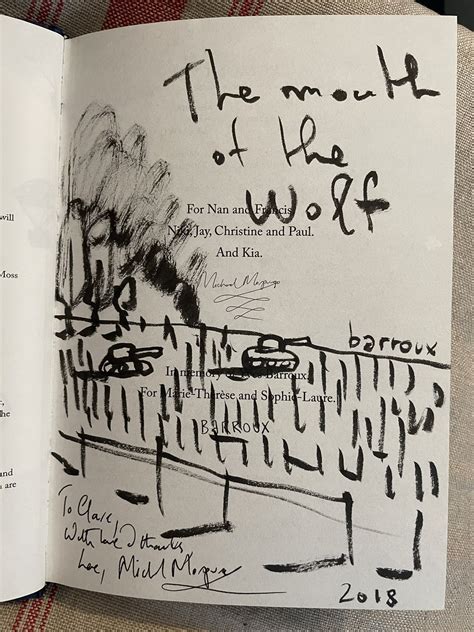 will
Moss
and
are
The mouth
of the
Wolf
For Nan and Francis
Jay, Christine and Paul.
And Kia.
Michael Morpurgo
barroux
In memory of Barroux.
For Marie-Thérèse and Sophie-Laure.
BARROUX
To Clare,
With love & thanks
Love, Michael Morpurgo
2018